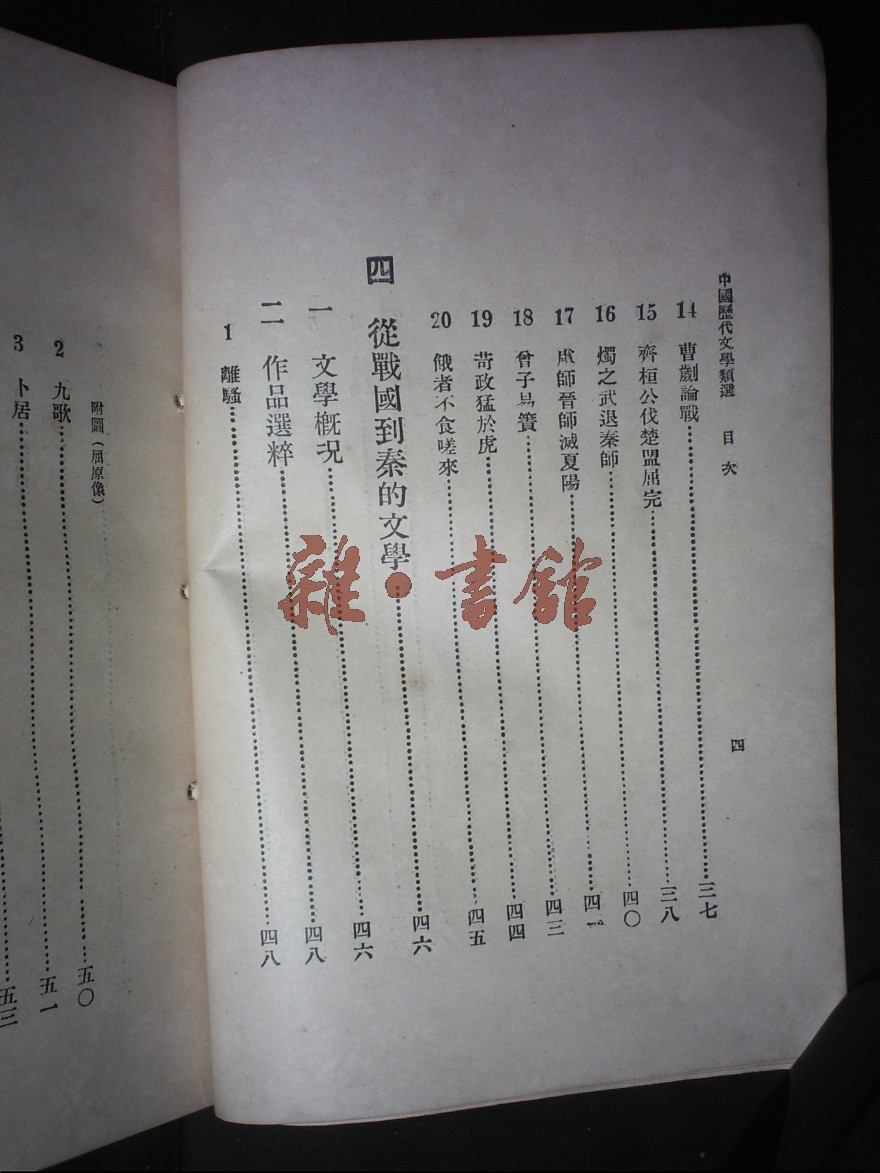 中國歷代文學類選 目次
四
14 曹劌論戰 三七
15 齊桓公伐楚盟屈完 三八
16 燭之武退秦師 四〇
17 虞師晉師滅夏陽
18 曾子易簀 四三
19 苛政猛於虎 四四
20 餓者不食嗟來 四五
四 從戰國到秦的文學 四六
一 文學概況 四六
二 作品選粹 四八
1 離騷 四八
附圖(屈原像) 五〇
2 九歌 五一
3 卜居 五三
雜·書館